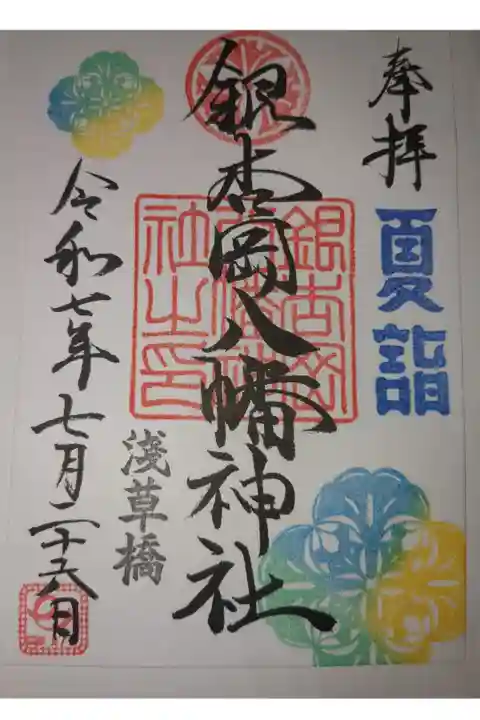 奉拝
夏詣
銀杏岡八幡神社
銀杏岡八幡神社之印
浅草橋
令和七年七月二十六日